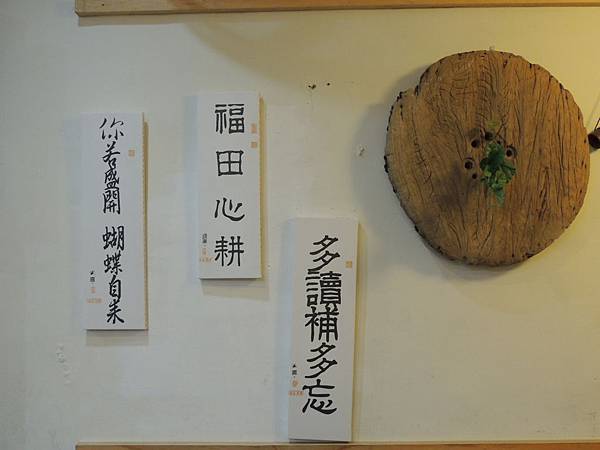 你若盛開 蝴蝶自来
福田心耕
多讀補多忘